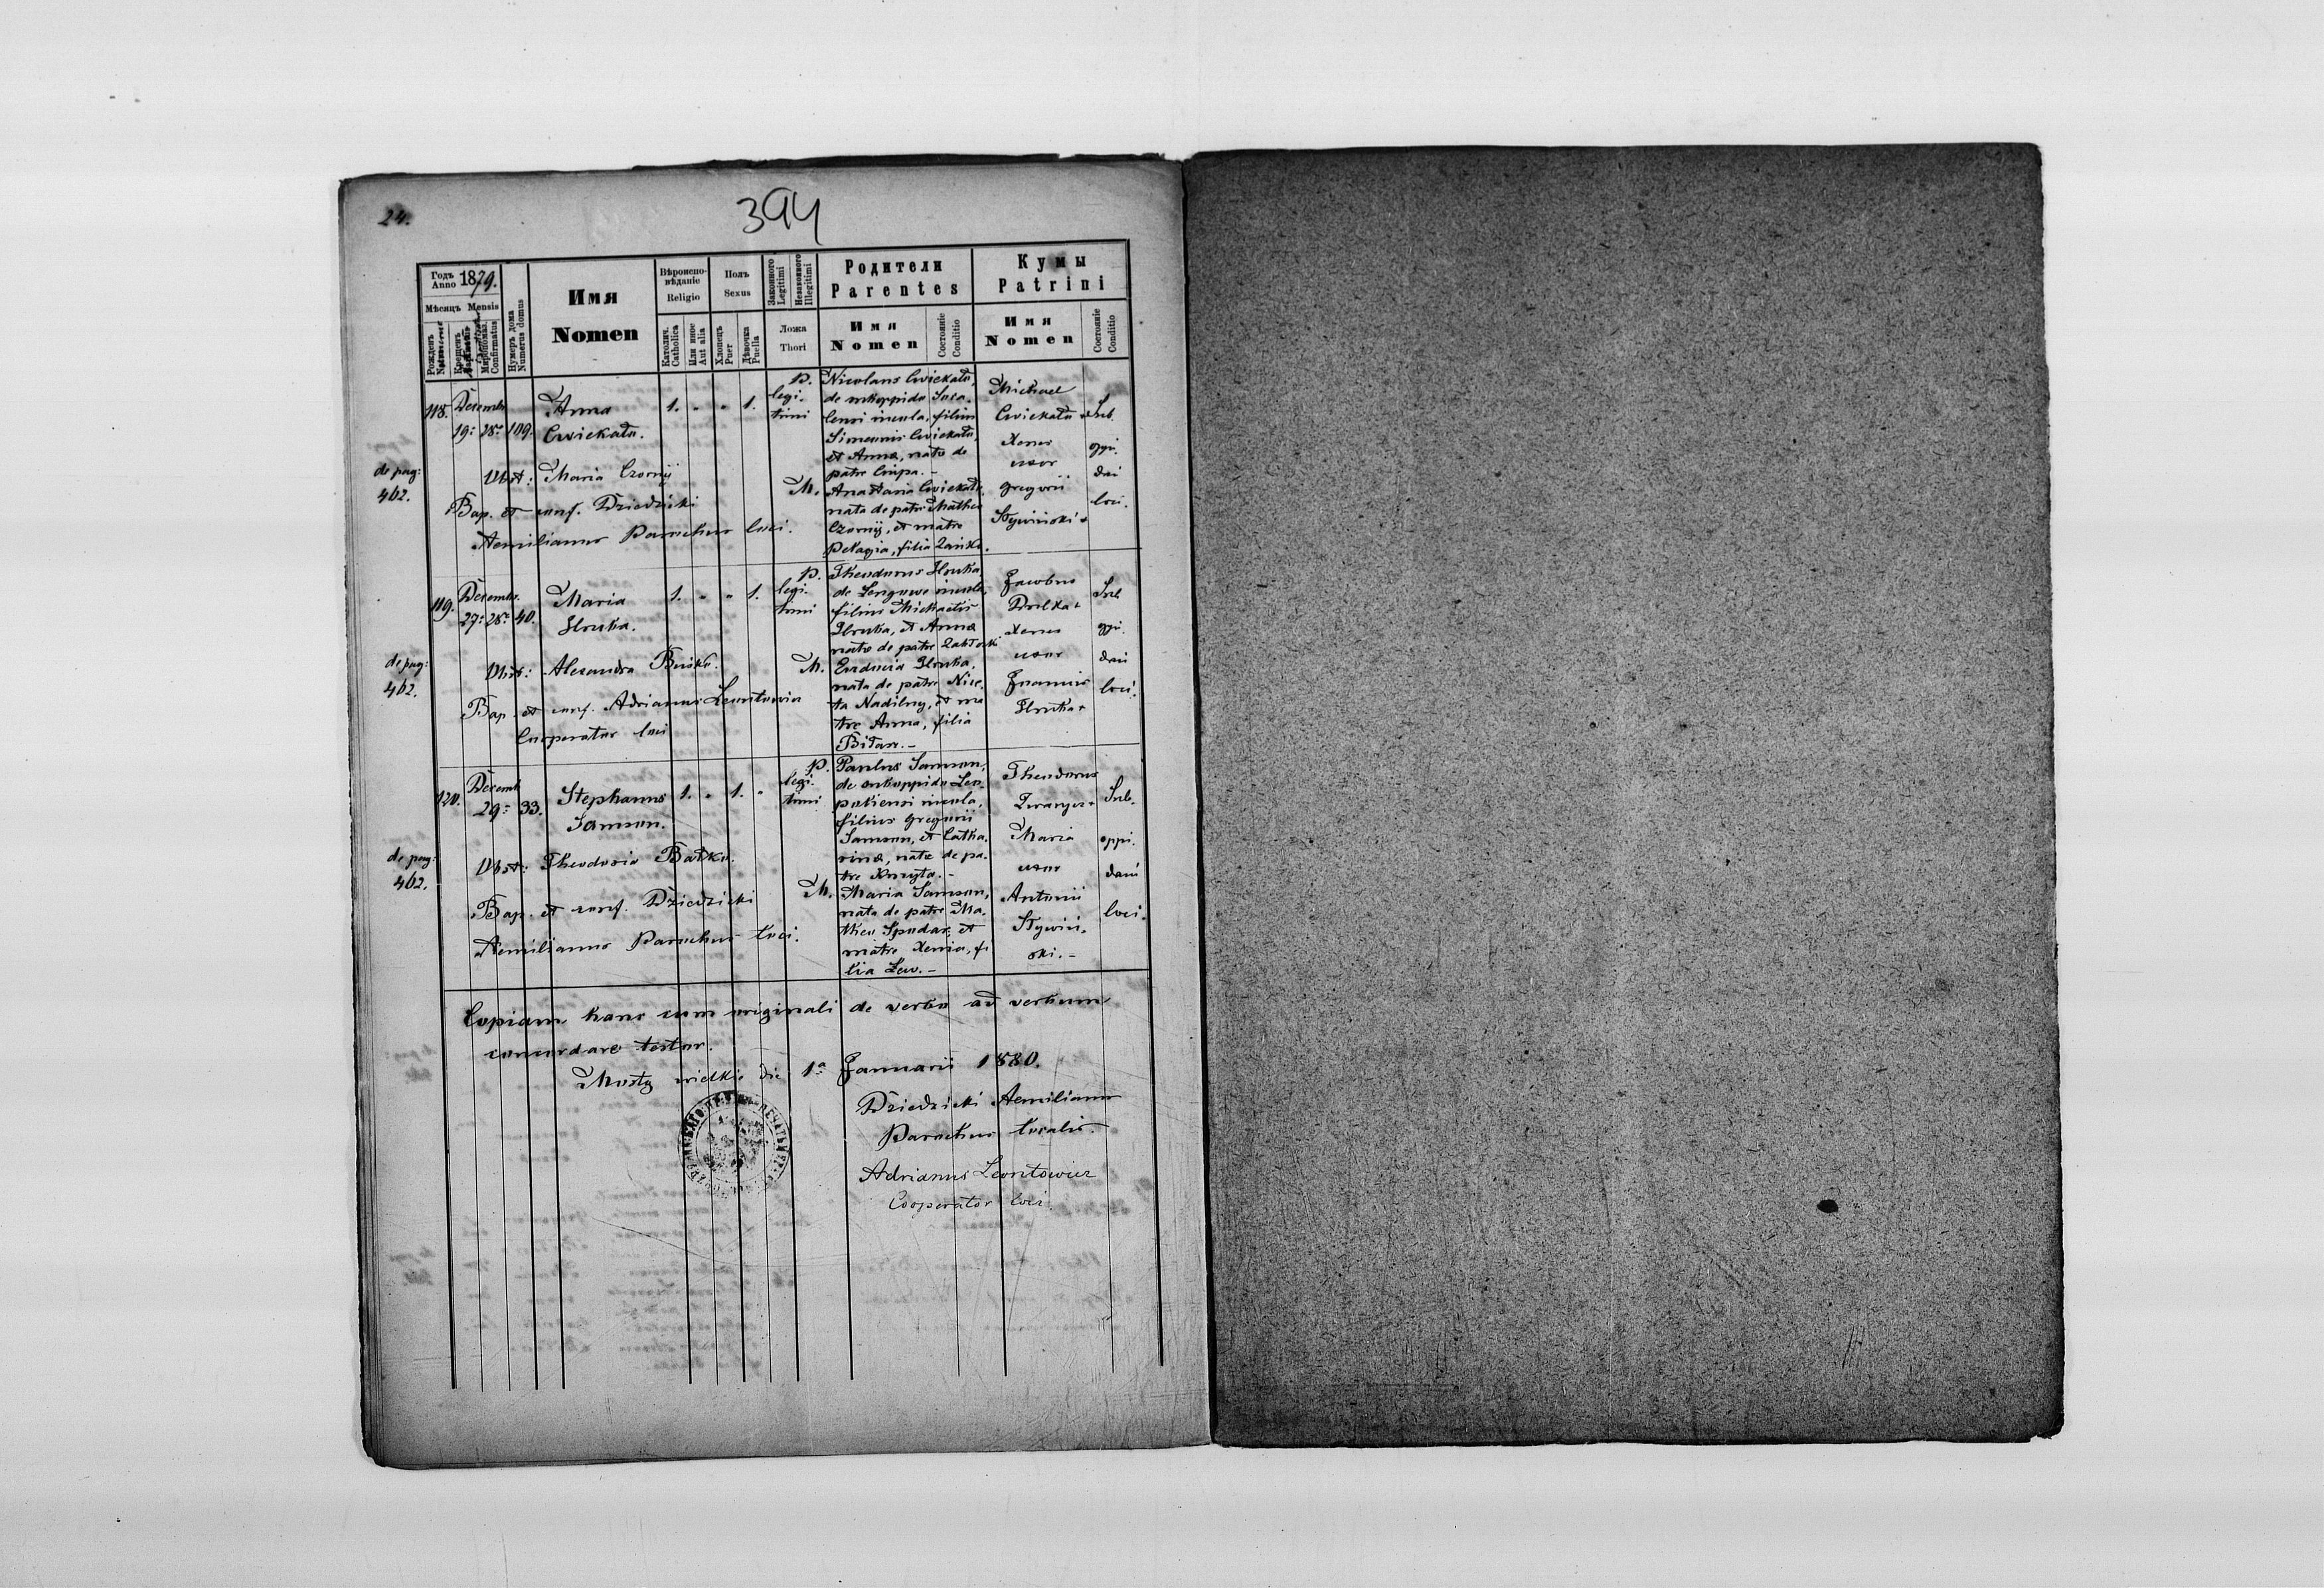 24.
394
Годъ Anno 1879.
Мѣсяцъ Mensis
Рожденъ Natus
Крещенъ Baptisatus
Мѵропомаз. Confirmatus
Нумеръ дома Numerus domus
Имя
Nomen
Вѣроисповѣданіе Religio
Католич. Catholica
Или иное Aut alia
Полъ Sexus
Хлопецъ Puer
Дѣвочка Puella
Законного Legitimi
Незаконного Illegitimi
Ложа Thori
Родители
Parentes
Имя Nomen
Состояніе Conditio
Кумы
Patrini
Имя Nomen
Состояніе Conditio
118. Decemb.
19: 28: 109.
Anna
Cwiekała.
1. " " 1.
legi-
timi
P. Nicolaus Cwiekała,
de suboppido
incola, filius
Simeonis Cwiekała,
et Annæ, natæ de
patre Cinpa. -
M. Anastasia Cwiekała,
nata de patre Matheo
Czornij, et matre
Pelagia, filia Zaiko.
Michael
Cwiekała +
Xenia
uxor
Gregorii
Hywiński +
Sub
oppi.
dani
loci.
de pag:
462.
Obst: Maria Czornij
Bap. et conf. Dziedzicki
Aemilianus Parochus loci.
119. Decemb.
27: 28: 40.
Maria
Hruka.
1. " " 1.
legi-
timi
P. Theodorus Hruka
de incola,
filius Michaelis
Hruka, et Annæ
natæ de patre
M. Eudocia Hruka,
nata de patre Nice-
ta Nadilny, et ma
tre Anna, filia
Biłan. -
Jacobus
Xenia
uxor
Joannis
Hruka +
Sub
oppi.
dani
loci.
de pag:
462.
Obst: Alexandra Busko.
Bap. et conf. Adrianus Leontowicz
Cooperator loci
120. Decemb
29: 33.
Stephanus
Samson.
1. " 1. "
legi-
timi
P. Paulus Samson,
de suboppido Leo-
incola,
filius Gregorii
Samson, et Catha-
rinæ, natæ de pa-
tre -
M. Maria Samson,
nata de patre Ma-
theo Spodar, et
matre Xenia, fi
lia Lew. -
Theodorus
Maria
uxor
Antonii
Hywiń-
ski. -
Sub-
oppi.
dani
loci.
de pag:
462.
Obst: Theodosia Batko.
Bap. et conf. Dziedzicki
Aemilianus Parochus loci.
Copiam hanc cum originali de verbo ad verbum
concordare testor.
Mosty wielkie die 1ª Januarii 1880.
Dziedzicki Aemilianus
Parochus localis.
Adrianus Leontowicz
Cooperator loci